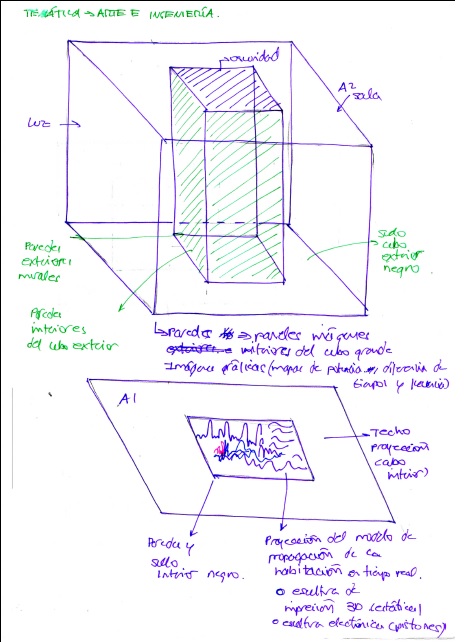 TEMÁTICA → ARTE E INGENIERÍA.
oscuridad
A2
sala
LUZ →
Paredes
exteriores
murales
suelo
cubo
exterior
negro.
Paredes
interiores
del cubo exterior
↳ Paredes → paredes imágenes
exteriores interiores del cubo grande
Imágenes gráficas (mapas de potencia diferencia de
tiempo y frecuencia)
A1
Techo
proyección
(cubo
interior)
Pared y
suelo
interior negro.
Proyección del modelo de
propagación de la
habitación en tiempo real.
o escultura de
impresión 3D (estática)
o escultura electrónica (pistones)